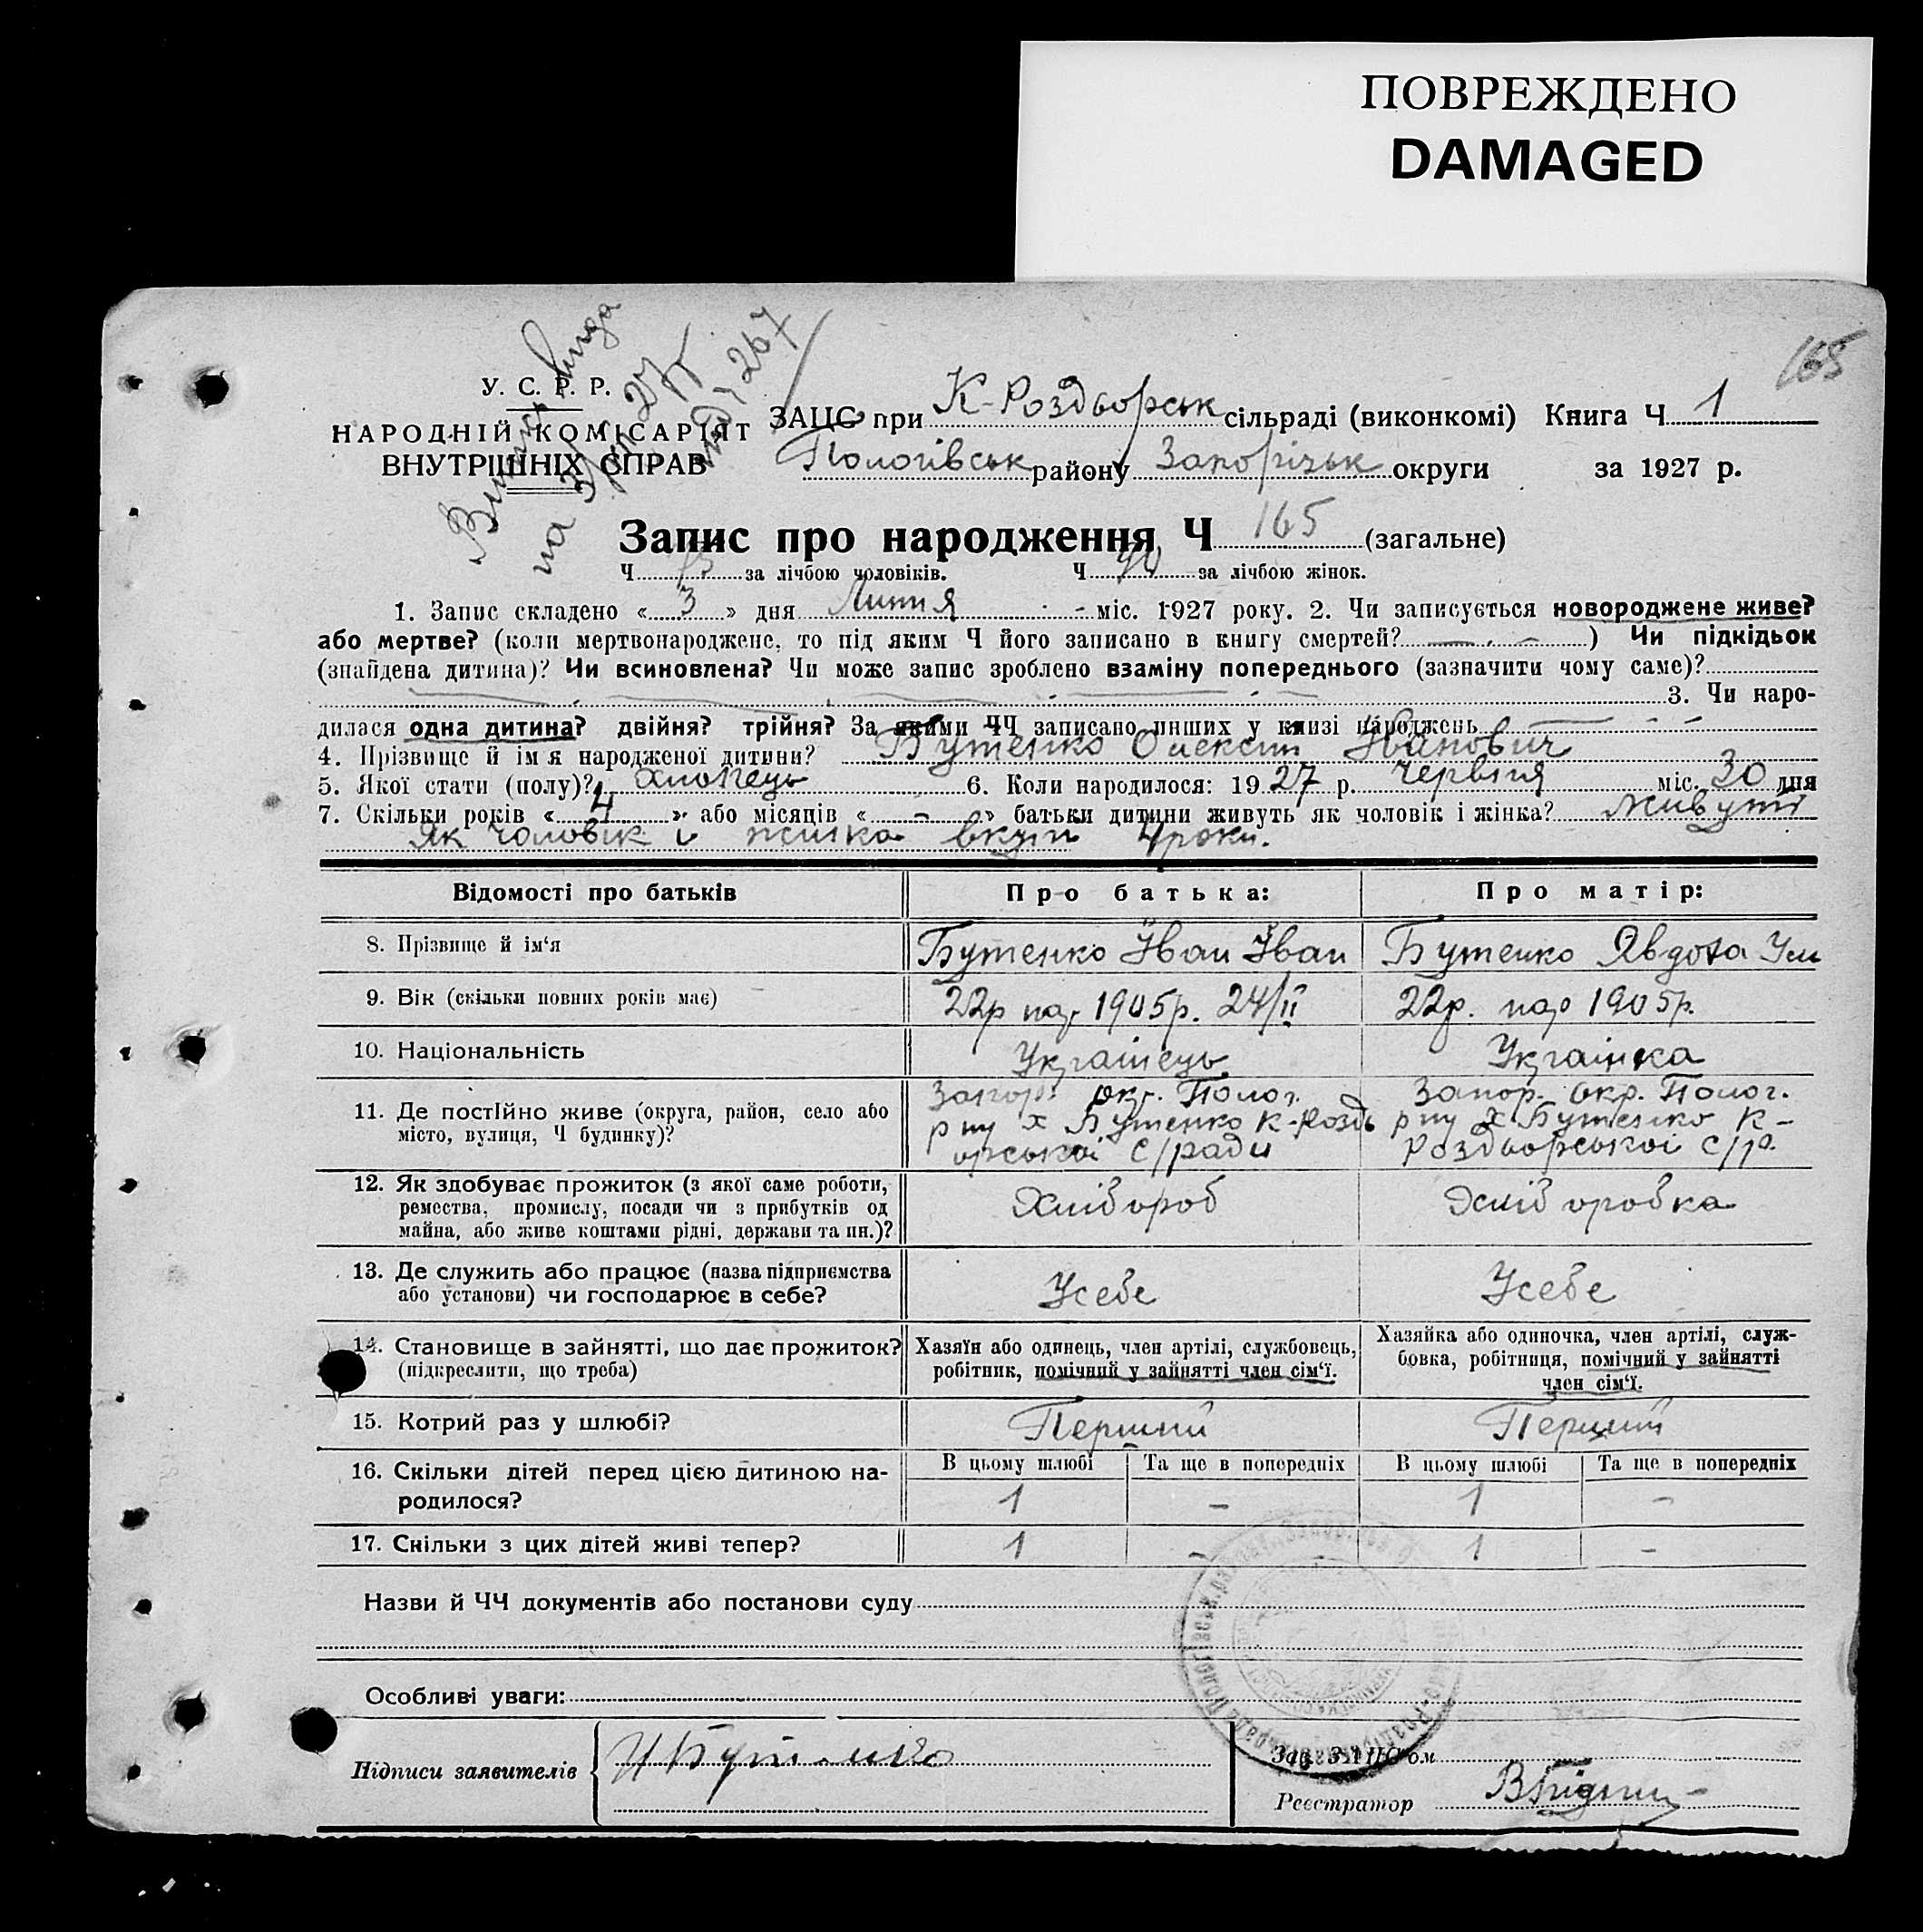 ПОВРЕЖДЕНО
DAMAGED
165
У. С. Р. Р.
НАРОДНІЙ КОМІСАРІЯТ
ВНУТРІШНІХ СПРАВ
267
ЗАЦС при К-Роздорськ сільраді (виконкомі) Книга Ч 1
Пологівськ району Запорізьк округи за 1927 р.
Запис про народження Ч 165 (загальне)
Ч 75 за лічбою чоловіків. Ч 90 за лічбою жінок.
1. Запис складено « 3 » дня Липня - міс. 1927 року. 2. Чи записується новороджене живе?
або мертве? (коли мертвонароджене, то під яким Ч його записано в книгу смертей? — ) Чи підкідьок
(знайдена дитина)? Чи всиновлена? Чи може запис зроблено взаміну попереднього (зазначити чому саме)?
3. Чи наро-
дилася одна дитина? двійня? трійня? За якими ЧЧ записано инших у книзі народжень
4. Прізвище й ім'я народженої дитини? Бутенко Олексій Іванович
5. Якої стати (полу)? хлопець 6. Коли народилося: 1927 р. червня міс. 30 дня
7. Скільки років « 4 » або місяців « - » батьки дитини живуть як чоловік і жінка? живуть
як чоловік і жінка вкупі 4 роки.
Відомості про батьків Про батька: Про матір:
8. Прізвище й ім'я Бутенко Іван Іван Бутенко Явдоха
9. Вік (скільки повних років має) 22р нар 1905р. 24/II 22р. нар 1905р.
10. Національність Українець Українка
11. Де постійно живе (округа, район, село або місто, вулиця, Ч будинку)?
Запор. окр. Полог. р ну х Бутенко К-Роздорської с/ради
Запор. окр. Полог. р ну х Бутенко К-Роздорської с/р.
12. Як здобуває прожиток (з якої саме роботи,
ремества, промислу, посади чи з прибутків од
майна, або живе коштами рідні, держави та ин.)?
Хлібороб Хліборобка
13. Де служить або працює (назва підприємства
або установи) чи господарює в себе?
Усебе Усебе
14. Становище в зайнятті, що дає прожиток?
(підкреслити, що треба)
Хазяїн або одинець, член артілі, службовець,
робітник, помічний у зайнятті член сім'ї.
Хазяйка або одиночка, член артілі, служ-
бовка, робітниця, помічний у зайнятті
член сім'ї.
15. Котрий раз у шлюбі? Перший Перший
16. Скільки дітей перед цією дитиною на-
родилося?
В цьому шлюбі Та ще в попередніх В цьому шлюбі Та ще в попередніх
1 - 1 -
17. Скільки з цих дітей живі тепер? 1 - 1 -
Назви й ЧЧ документів або постанови суду
Особливі уваги:
Підписи заявителів И Бутенко
Зав. ЗАЦС'ом
Реєстратор